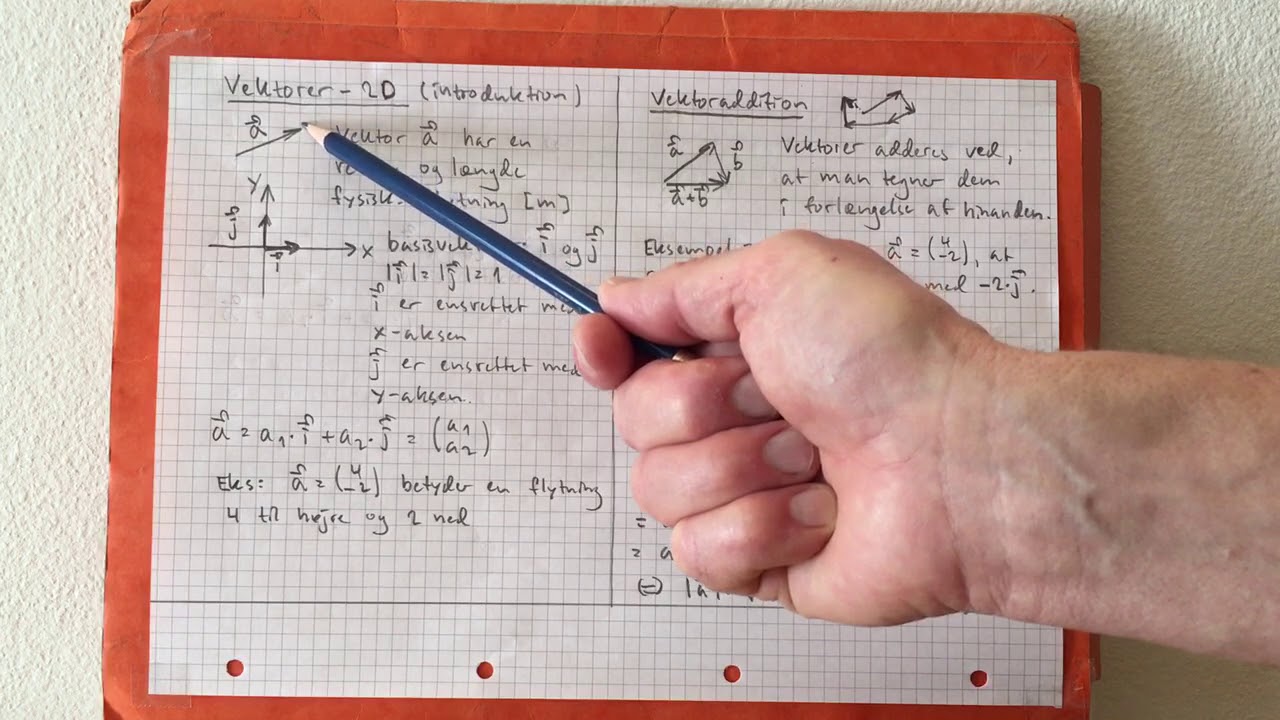 Vektorer - 2D (introduktion)
a⃗
Vektor a⃗ har en
og længde
fysisk [m]
y
j⃗
x
i⃗
i⃗ og j⃗
|i⃗| = |j⃗| = 1
i⃗ er ensrettet med
x-aksen
j⃗ er ensrettet med
y-aksen.
a⃗ = a₁·i⃗ + a₂·j⃗ = (a₁ a₂)
Eks: a⃗ = (4 -2) betyder en flytning
4 til højre og 2 ned
Vektoraddition
a⃗
b⃗
a⃗+b⃗
Vektorer adderes ved,
at man tegner dem
i forlængelse af hinanden.
Eksempel a⃗ = (4 -2), at
med -2·j⃗.
=
= a